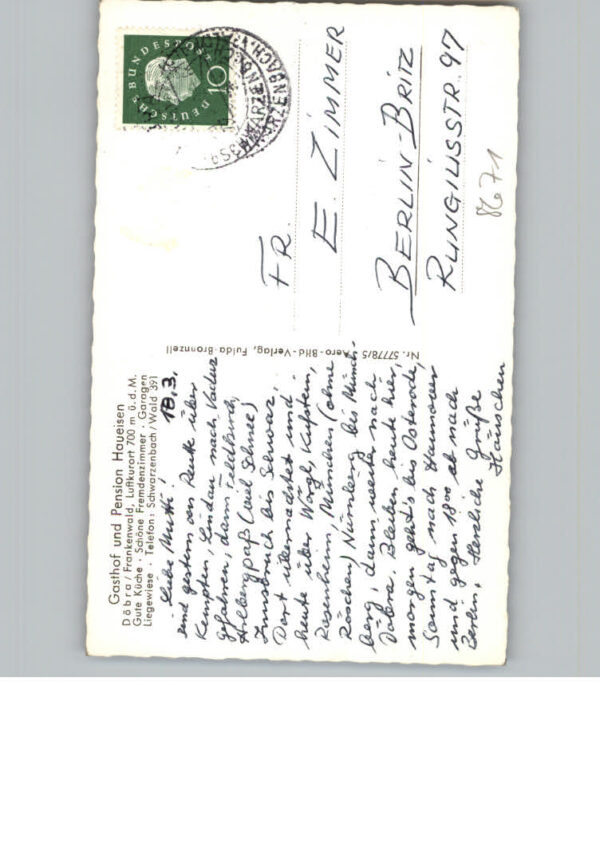 Gasthof und Pension Haueisen
Döbra/Frankenwald, Luftkurort 700 m ü.d.M.
Gute Küche · Schöne Fremdenzimmer · Garagen
Liegewiese · Telefon: Schwarzenbach/Wald 391
18.3.
Liebe Mutti!
sind gestern von Reutte über
Kempten, Lindau nach Vaduz
gefahren, dann Feldkirch,
Arlbergpaß (viel Schnee)
Innsbruck bis Schwaz.
Dort übernachtet und
heute über Wörgl, Kufstein,
Rosenheim, München (ohne
Röschen) Nürnberg bis Münch-
berg, dann weiter nach
Döbra. Bleiben heute hier,
morgen geht's bis Osterode,
Sonntag nach Hannover
und gegen 1800 ab nach
Berlin. Herzliche Grüße
Häuschen
Nr. 57778/5 Aero-Bild-Verlag, Fulda-Bronnzell
DEUTSCHE BUNDESPOST
10
SCHWARZENBACH
FR.
E. ZIMMER
BERLIN-BRITZ
RUNGIUSSTR. 97